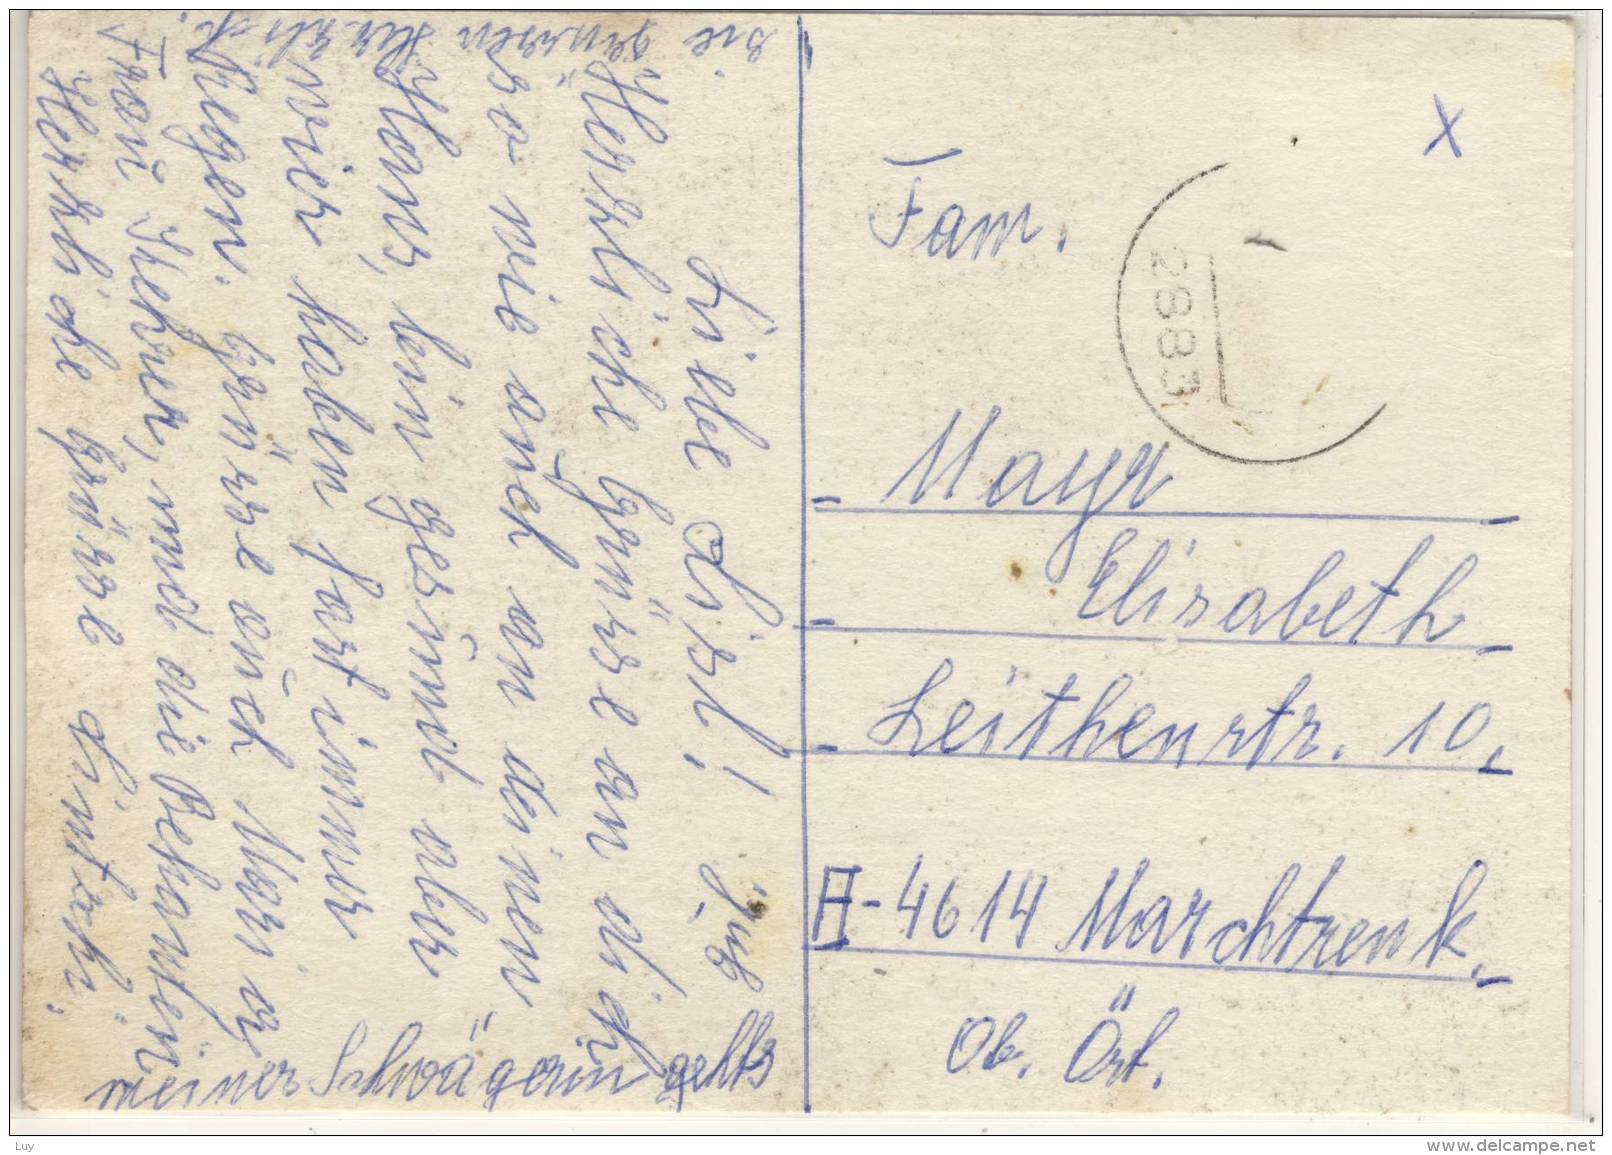 Liebe Lisl!
Herzliche Grüsse an dich
so wie auch an deinen
Hans, bin gesund aber
wier haben fort immer
Regen. Grüsse auch Mari
Frau Huber, und die Bekanten
Herzliche Grüsse
meiner Schwägerin gehts
gut
sie grüssen Herzlich.
x
2883
Fam.
Mayr
Elisabeth
Leithenstr. 10.
A-4614 Marchtrenk.
Ob. Öst.
Luy
www.delcampe.net